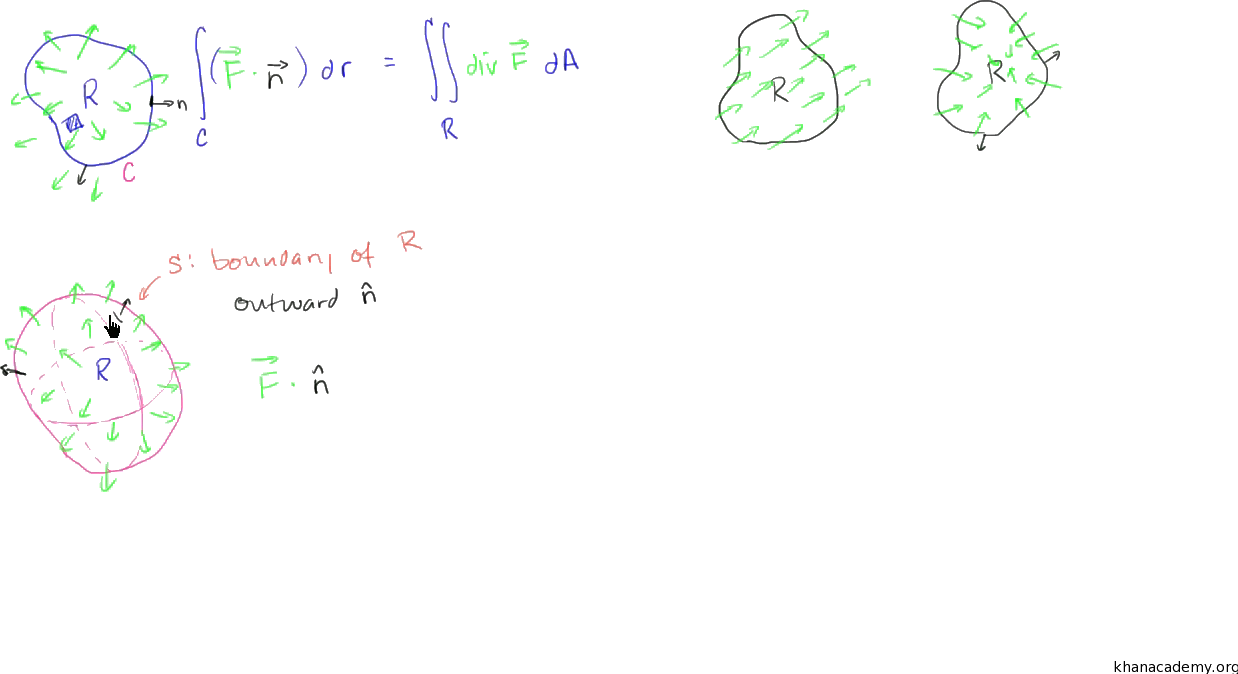 R
n
C
∫_C (F⃗ · n⃗) dr = ∬_R div F⃗ dA
R
R
S: boundary of R
outward n̂
R
F⃗ · n̂
khanacademy.org